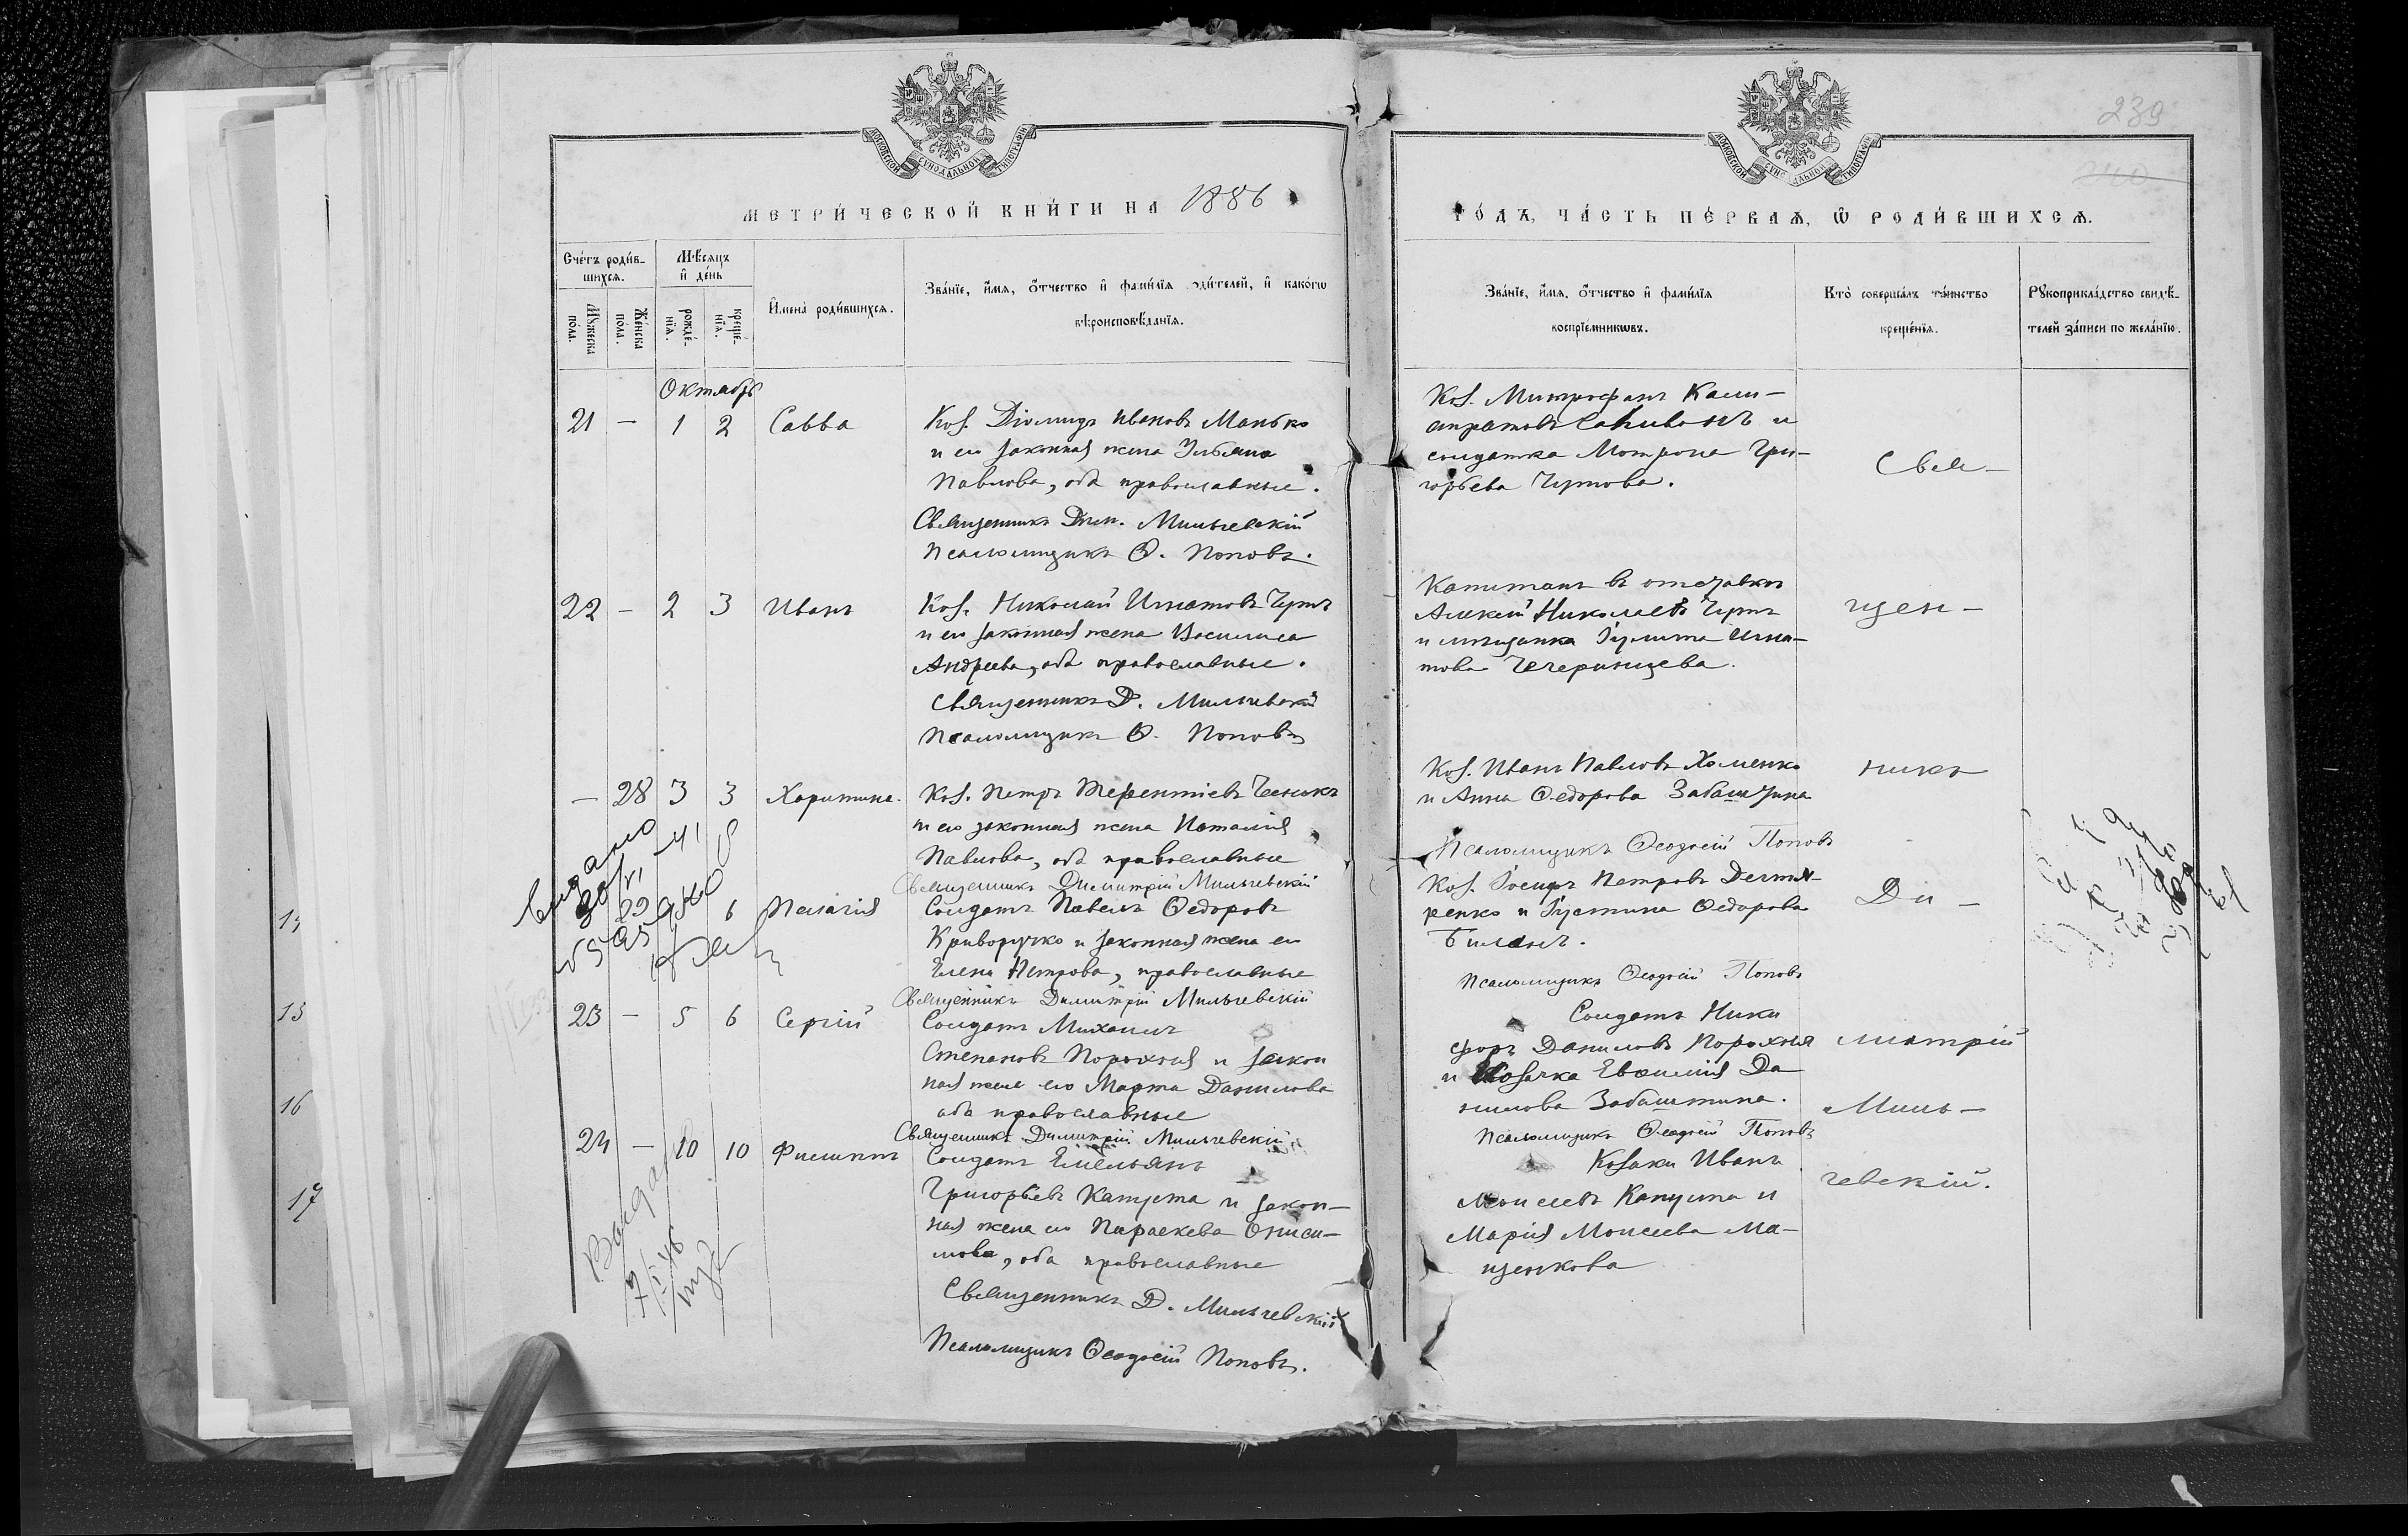 239
МОСКОВСКОЙ СѴНОДАЛЬНОЙ ТИПОГРАФІИ
МОСКОВСКОЙ СѴНОДАЛЬНОЙ ТИПОГРАФІИ
МЕТРИ́ЧЕСКОЙ КНИ́ГИ НА 1886
ГО́ДЪ, ЧА́СТЬ ПЕ́РВАѦ, Ѡ РОДИ́ВШИХСѦ.
Сче́тъ роди́в-
шихсѧ.
Мꙋ́жеска по́ла.
Же́нска по́ла.
Мѣ́сѧцъ
и҆ де́нь
рожде́-
нїѧ.
креще́-
нїѧ.
И҆мена̀ роди́вшихсѧ.
Зва́нїе, и҆́мѧ, ѻ҆́тчество и҆ фами́лїѧ роди́телей, и҆ како́гѡ
вѣроисповѣ́данїѧ.
Зва́нїе, и҆́мѧ, ѻ҆́тчество и҆ фами́лїѧ
воспрїе́мникѡвъ.
Кто̀ соверша́лъ та́инство
креще́нїѧ.
Рꙋкоприкла́дство свидѣ́-
телей за́писи по жела́нїю.
Октябрь
21 — 1 2 Савва
Коз. Діомидъ Ивановъ Манько
и его законная жена Ульяна
Павлова, оба православные.
Священникъ Дим. Мильчевскій
Псаломщикъ Ѳ. Поповъ.
Коз. Митрофанъ Кали-
стратовъ и
солдатка Мотрона Гри-
горьева Чупова.
22 — 2 3 Иванъ
Коз. Николай Игнатовъ Чупъ
и его законная жена Василиса
Андреева, оба православные.
Священникъ Д. Мильчевскій
Псаломщикъ Ѳ. Поповъ
Капитанъ въ отставкѣ
Алексій Николаевъ Чупъ
и мѣщанка Іулита Игна-
това Чечеринцева.
— 28 3 3 Харитина.
Коз. Петръ Терентіевъ
и его законная жена Наталія
Павлова, оба православные
Священникъ Димитрій Мильчевскій
Коз. Иванъ Павловъ Хоменко
и Анна Ѳедорова Забаштина
Псаломщикъ Ѳеодосій Поповъ
Выдано
29 6 Пелагія
Солдатъ Павелъ Ѳедоровъ
Криворучко и законная жена его
Елена Петрова, православные
Священникъ Димитрій Мильчевскій
Коз. Іосифъ Петровъ Дегтя-
ренко и Іустина Ѳедорова
Биланъ.
Псаломщикъ Ѳеодосій Поповъ
23 — 5 6 Сергій
Солдатъ Михаилъ
Степановъ Порохня и закон
ная жена его Марта Данилова
оба православные
Священникъ Димитрій Мильчевскій
Солдатъ Ники
форъ Даниловъ Порохня
и Козачка Евфимія Да
нилова Забаштина.
Псаломщикъ Ѳеодосій Поповъ
24 — 10 10 Филиппъ
Солдатъ Емельянъ
Григорьевъ Капуста и закон-
ная жена его Параскева Ониси-
мова, оба православные
Священникъ Д. Мильчевскій
Псаломщикъ Ѳеодосій Поповъ.
Козаки Иванъ
Моисеевъ Капуста и
Марія Моисеева Ма-
щенкова
Свя-
щен-
никъ
Ди-
митрій
Миль-
чевскій.
Выдан
7/I 46
15
16
17